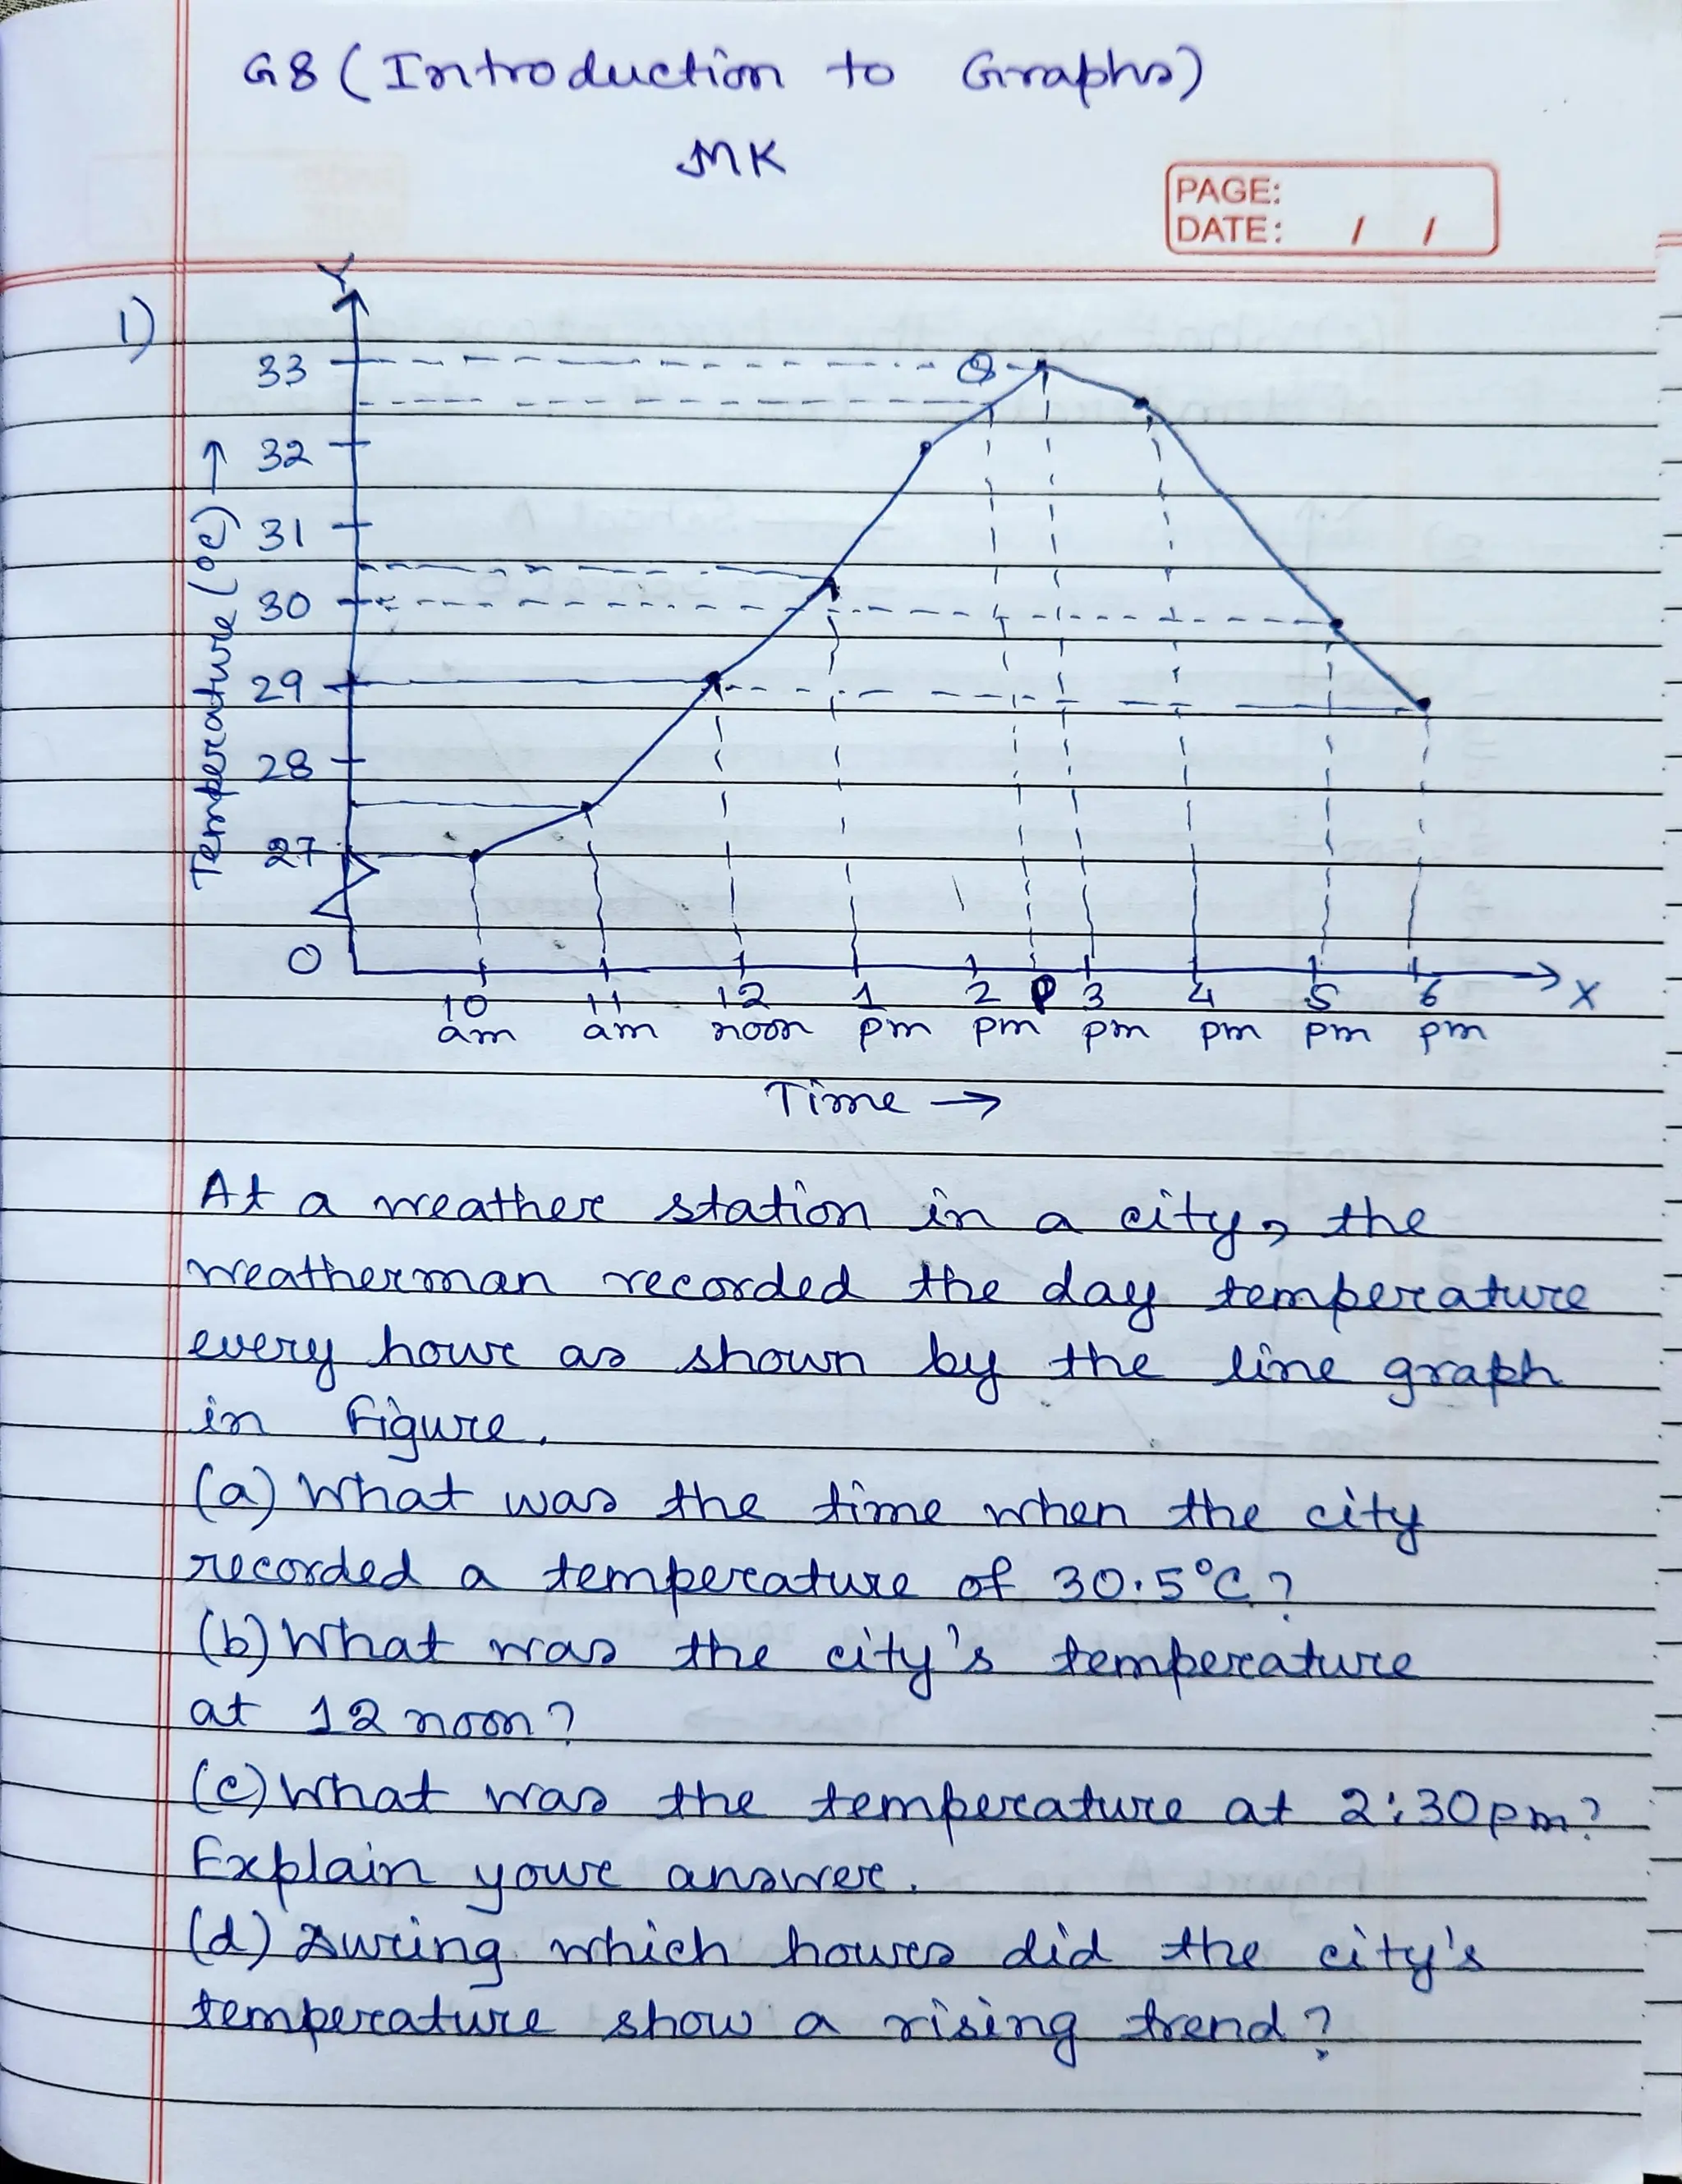 G8 (Introduction to Graphs)
MK
PAGE:
DATE: / /
1)
Y
33
Q
32
31
30
29
28
27
0
Temperature (0c) →
10 11 12 1 2 P 3 4 5 6 X
am am noon pm pm pm pm pm pm
Time →
At a weather station in a city, the
weatherman recorded the day temperature
every hour as shown by the line graph
in Figure.
(a) What was the time when the city
recorded a temperature of 30.5°C?
(b) What was the city's temperature
at 12 noon?
(c) What was the temperature at 2:30pm?
Explain your answer.
(d) During which hours did the city's
temperature show a rising trend?